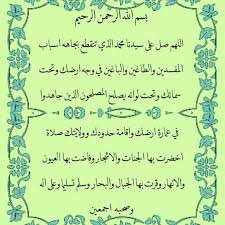 بسم الله الرحمن الرحيم
اللهم صل على سيدنا محمد الذي تنقطع بجاهه اسباب
المفسدين والطاغين والباغين في وجه ارضك وتحت
سمائك وتحت لوائه يصلح المصلحون الذين جاهدوا
في عمارة ارضك واقامة حدودك وولايتك صلاة
اخضرت بها الجنات والاشجار وفاضت بها العيون
والانهار وقرت بها الجبال والبحار وسلم تسليما وعلى اله
وصحبه اجمعين